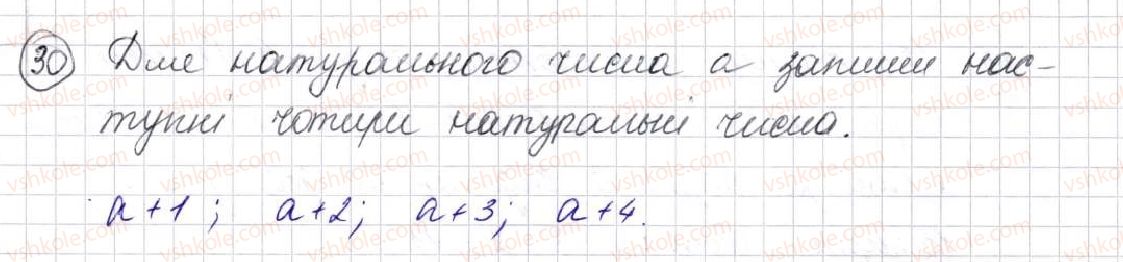 30 Для натурального числа a запиши нас-
тупні чотири натуральні числа.
a+1; a+2; a+3; a+4.